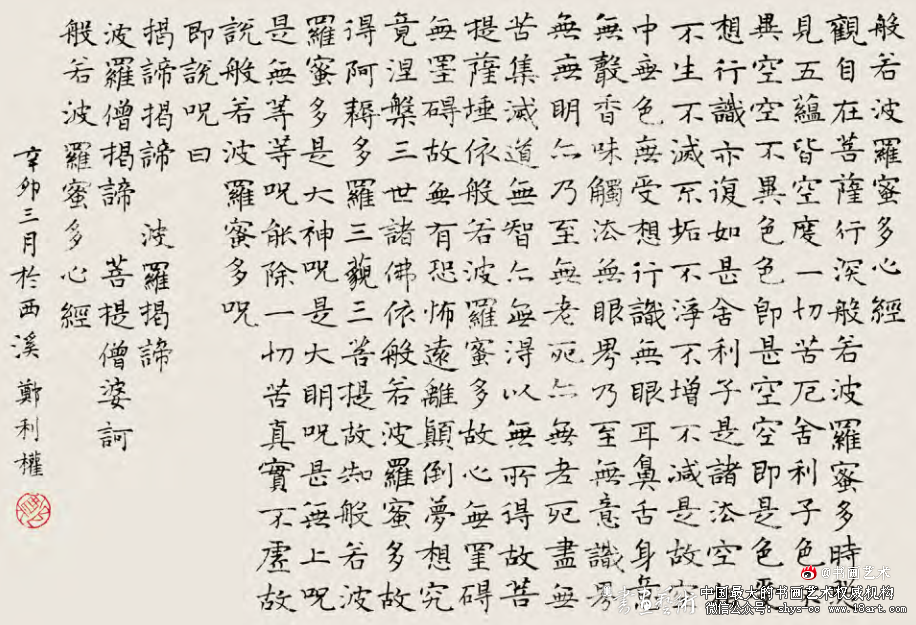 般若波羅蜜多心經
觀自在菩薩行深般若波羅蜜多時
見五蘊皆空度一切苦厄舍利子色不
異空空不異色色即是空空即是色受
想行識亦復如是舍利子是諸法空相
不生不滅不垢不淨不增不減是故空
中無色無受想行識無眼耳鼻舌身意
無聲香味觸法無眼界乃至無意識界
無無明亦乃至無老死亦無老死盡無
苦集滅道無智亦無得以無所得故菩
提薩埵依般若波羅蜜多故心無罣礙
無罣礙故無有恐怖遠離顛倒夢想究
竟涅槃三世諸佛依般若波羅蜜多故
得阿耨多羅三藐三菩提故知般若波
羅蜜多是大神呪是大明呪是無上呪
是無等等呪能除一切苦真實不虛故
說般若波羅蜜多呪
即說呪曰
揭諦揭諦 波羅揭諦
波羅僧揭諦 菩提僧婆訶
般若波羅蜜多心經
辛卯三月於西溪 鄭利權
@书画艺术
書画藝術 中国最大的书画艺术权威机构
微信公众号：shys-cc www.18art.com